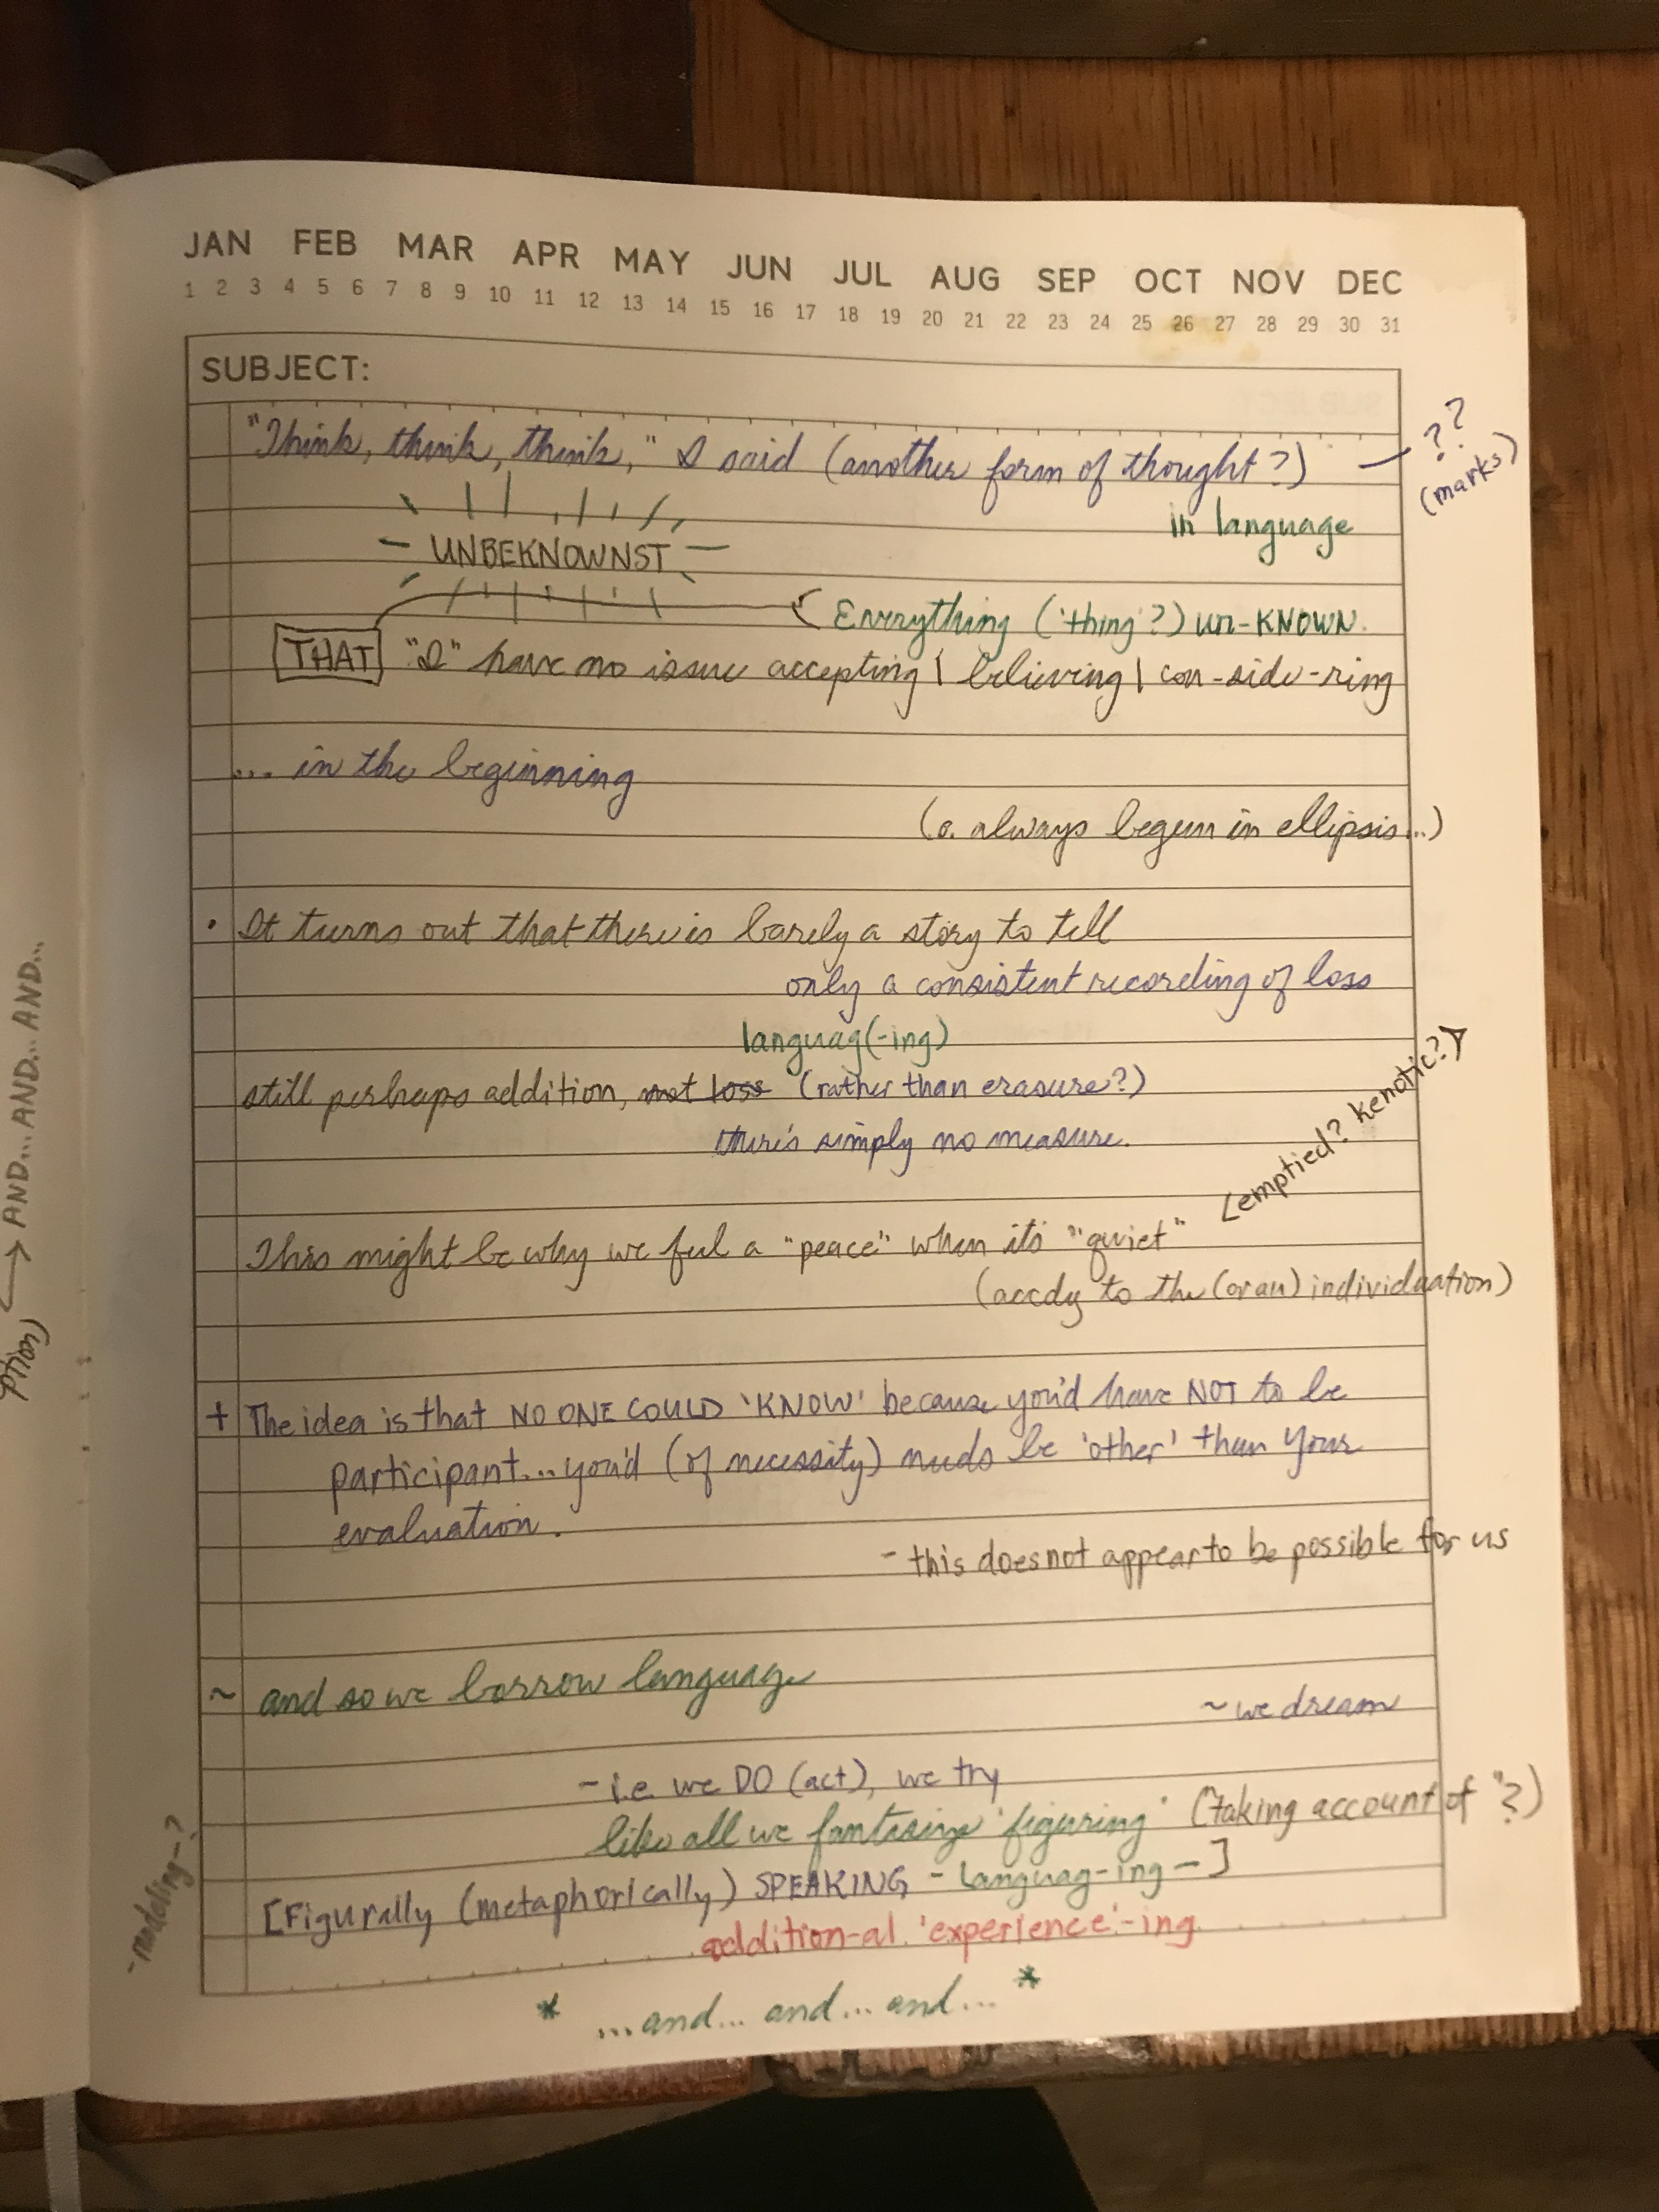 JAN FEB MAR APR MAY JUN JUL AUG SEP OCT NOV DEC
1 2 3 4 5 6 7 8 9 10 11 12 13 14 15 16 17 18 19 20 21 22 23 24 25 26 27 28 29 30 31
SUBJECT:
"Think, think, think," I said (another form of thought?) — ??
(marks)
in language
- UNBEKNOWNST -
( Everything ('thing'?) un-KNOWN.
THAT "I" have no issue accepting | believing | con-side-ring
... in the beginning
always begun in ellipsis...)
• It turns out that there is barely a story to tell
only a consistent recording of loss
languag(-ing)
still perhaps addition, not loss (rather than erasure?)
there's simply no measure.
(emptied? kenotic?)
This might be why we feel a "peace" when it's "quiet"
to the (or an) individuation)
+ The idea is that NO ONE COULD 'KNOW' because you'd have NOT to be
participant... you'd (of necessity) needs be 'other' than your
evaluation.
- this does not appear to be possible for us
~ and so we borrow language
~ we dream
- i.e. we DO (act), we try
like all we fantasize 'figuring' (taking account of "?)
[Figurally (metaphorically) SPEAKING - Languag-ing -]
addition-al 'experience'-ing
* ...and... and... and... *
→ AND... AND... AND... AND...
ption)